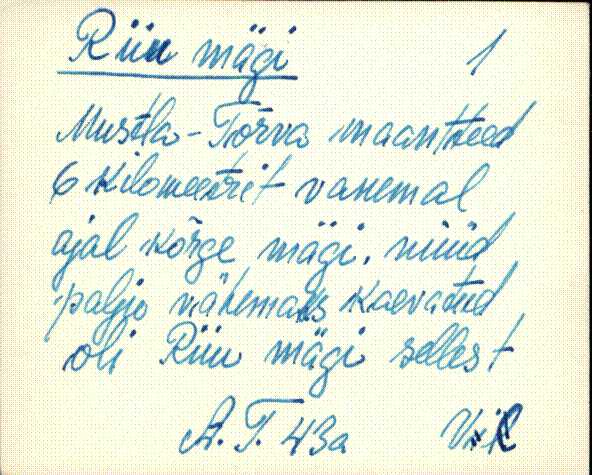 Riiu mägi 1
Mustla-Tõrva maanteed
6 kilomeetrit vanemal
ajal kõrge mägi, nüüd
paljo vähemaks kaevatud
oli Riiu mägi sellest
A. T. 43a